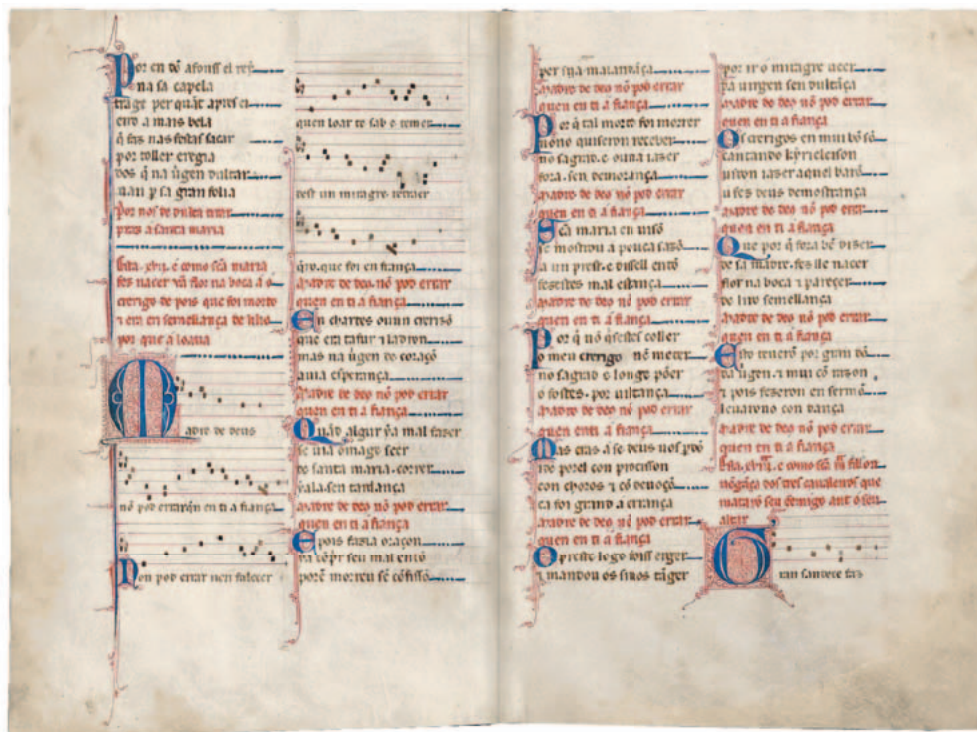 Por en dõ afonss el rey
na sa capela
trage per quãt apres el
end a mais bela
q̃ fas nas festas sacar
por toller eregia
dos q̃ na ũgen dultar
uan p̱ sa gran folia
Por nos de dulta tirar
pres a santa maria
Esta .xviii. e como scã maria
fes nacer ũa flor na boca a o
crerigo de pois que foi morto
τ era en semellança de lilio
por que a loaua
Madre de deus
nõ pod errar q̃n en ti a fiança
Non pod errar nen falecer
quen loar te sab e temer
dest un miragre retraer
q̃ro. que foi en frança
Madre de deo. nõ pod errar
quen en ti a fiança
En chartes ouuun crerigo
que era tafur τ ladron
mas na ũgen de coraço
auia esperança
Madre de deo nõ pod errar
quen en ti a fiança
Quãd algur ya mal fazer
se uia omage seer
de santa maria. correr
yala. sen tardança
Madre de deo nõ pod errar
quen en ti a fiança
E pois fazia oraçon
ya cõp̱r seu mal entõ
porẽ morreu sẽ cõfissõ
per sua malandãça
Madre de deo nõ pod errar
quen en ti a fiança
Por q̃ tal morte foi morrer
nono quiseron receber
no sagrad. e ouua iazer
fora. sen demorança
Madre de deo nõ pod errar
quen en ti a fiança
Scã maria en uisõ
se mostrou a pouca sazõ
a un prest. e dissell entõ
fezestes mal estança
Madre de deo nõ pod errar
quen en ti a fiança
Por q̃ nõ q̃sestes coller
o meu crerigo nẽ meter
no sagrad e longe põer
o fostes. por uiltança
Madre de deo nõ pod errar
quen en ti a fiança
Mas cras a se deus uos pdõ
ide porel con procisson
con choros τ cõ deuoçõ
ca foi grand a errança
Madre de deo nõ pod errar
quen en ti a fiança
O preste logo foiss erger
τ mandou os sinos tãger
por ir o miragre ueer
da uirgen sen dultãça
Madre de deo nõ pod errar
quen en ti a fiança
Os crerigos en mui bõ sõ
cantando kyrieleison
uiron iazer aquel barõ
u fez deus demostrança
Madre de deo nõ pod errar
quen en ti a fiança
Que por q̃ fora bẽ dizer
de sa madre. fez lle nacer
flor na boca τ parecer
de lirio semellança
Madre de deo nõ pod errar
quen en ti a fiança
Esto teuerõ por gran dõ
da ũgen. τ mui cõ razon
τ pois fezeron en sermõ
leuarono con dança
Madre de deo nõ pod errar
quen en ti a fiança
e como scã
dos tres caualeiros que
mataro seu ẽemigo ant o seu
altar
Gran sandece faz